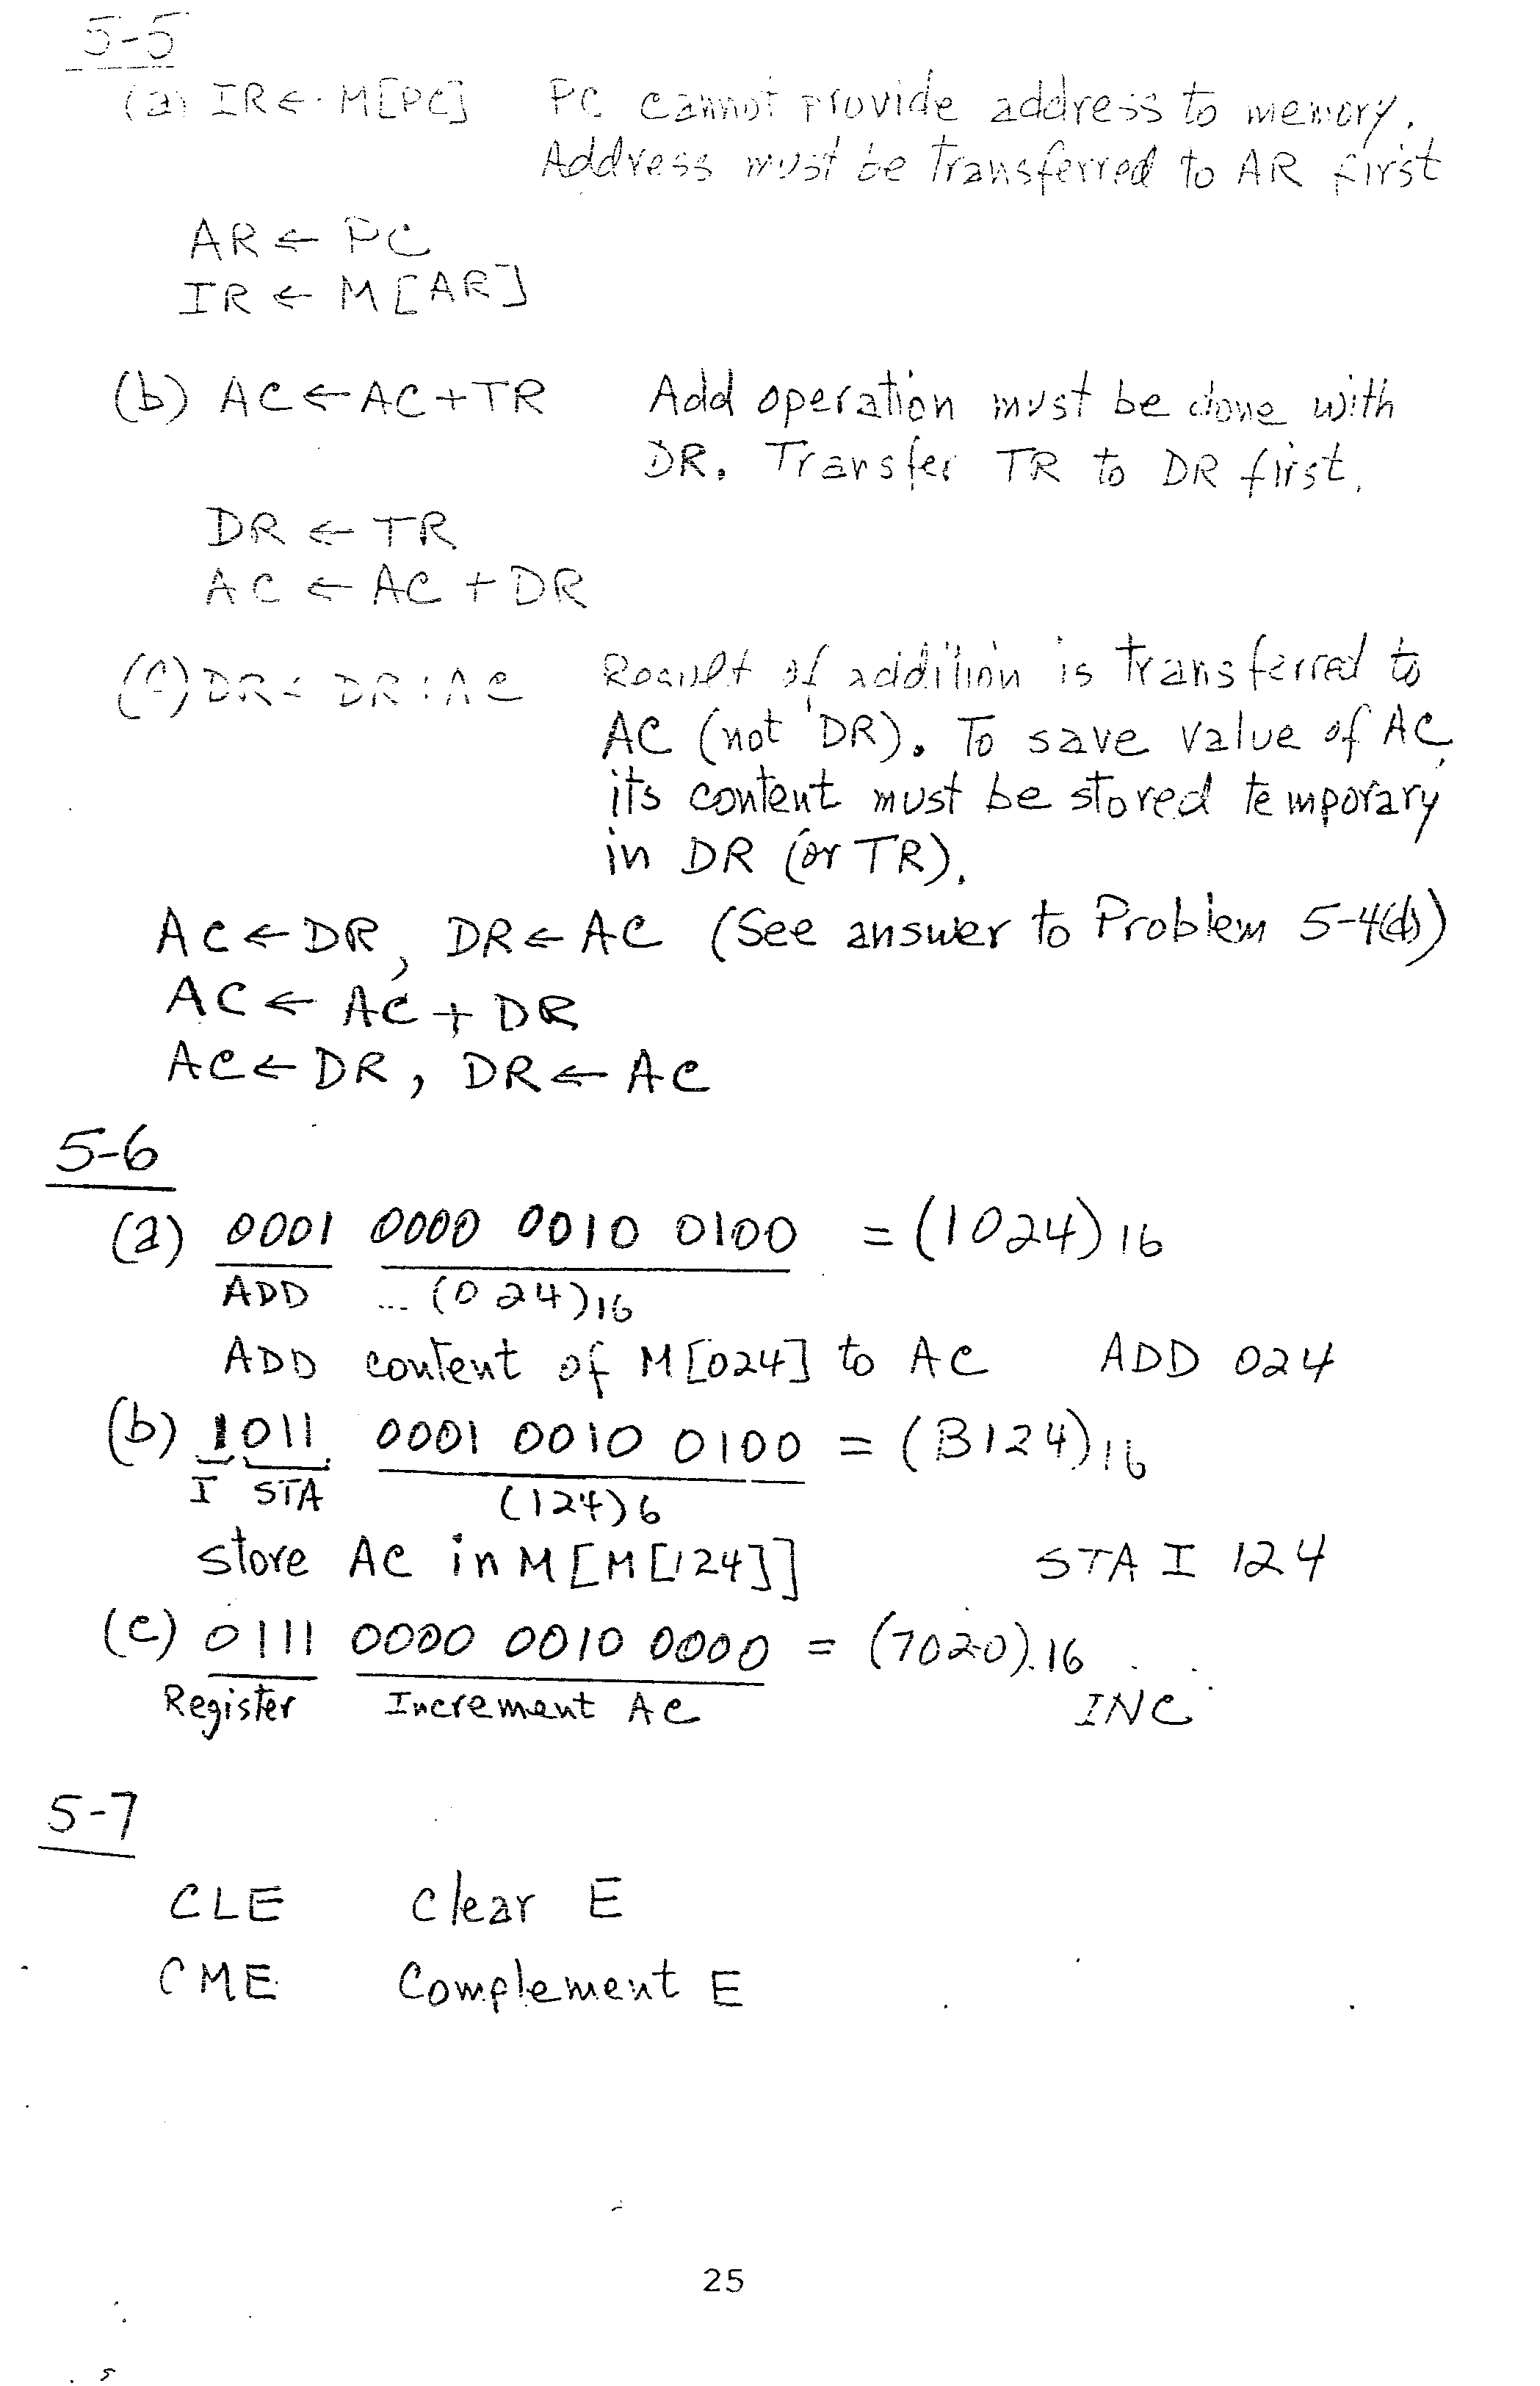 5-5
(a) IR ← M[PC] PC cannot provide address to memory.
Address must be transferred to AR first
AR ← PC
IR ← M[AR]
(b) AC ← AC + TR Add operation must be done with
DR. Transfer TR to DR first.
DR ← TR
AC ← AC + DR
(c) DR ← DR + AC Result of addition is transferred to
AC (not DR). To save value of AC,
its content must be stored temporary
in DR (or TR).
AC ← DR, DR ← AC (See answer to Problem 5-4(d))
AC ← AC + DR
AC ← DR, DR ← AC
5-6
(a) 0001 0000 0010 0100 = (1024)16
ADD ... (024)16
ADD content of M[024] to AC ADD 024
(b) 1011 0001 0010 0100 = (B124)16
I STA (124)6
store AC in M[M[124]] STA I 124
(c) 0111 0000 0010 0000 = (7020)16
Register Increment AC INC
5-7
CLE Clear E
CME Complement E
25